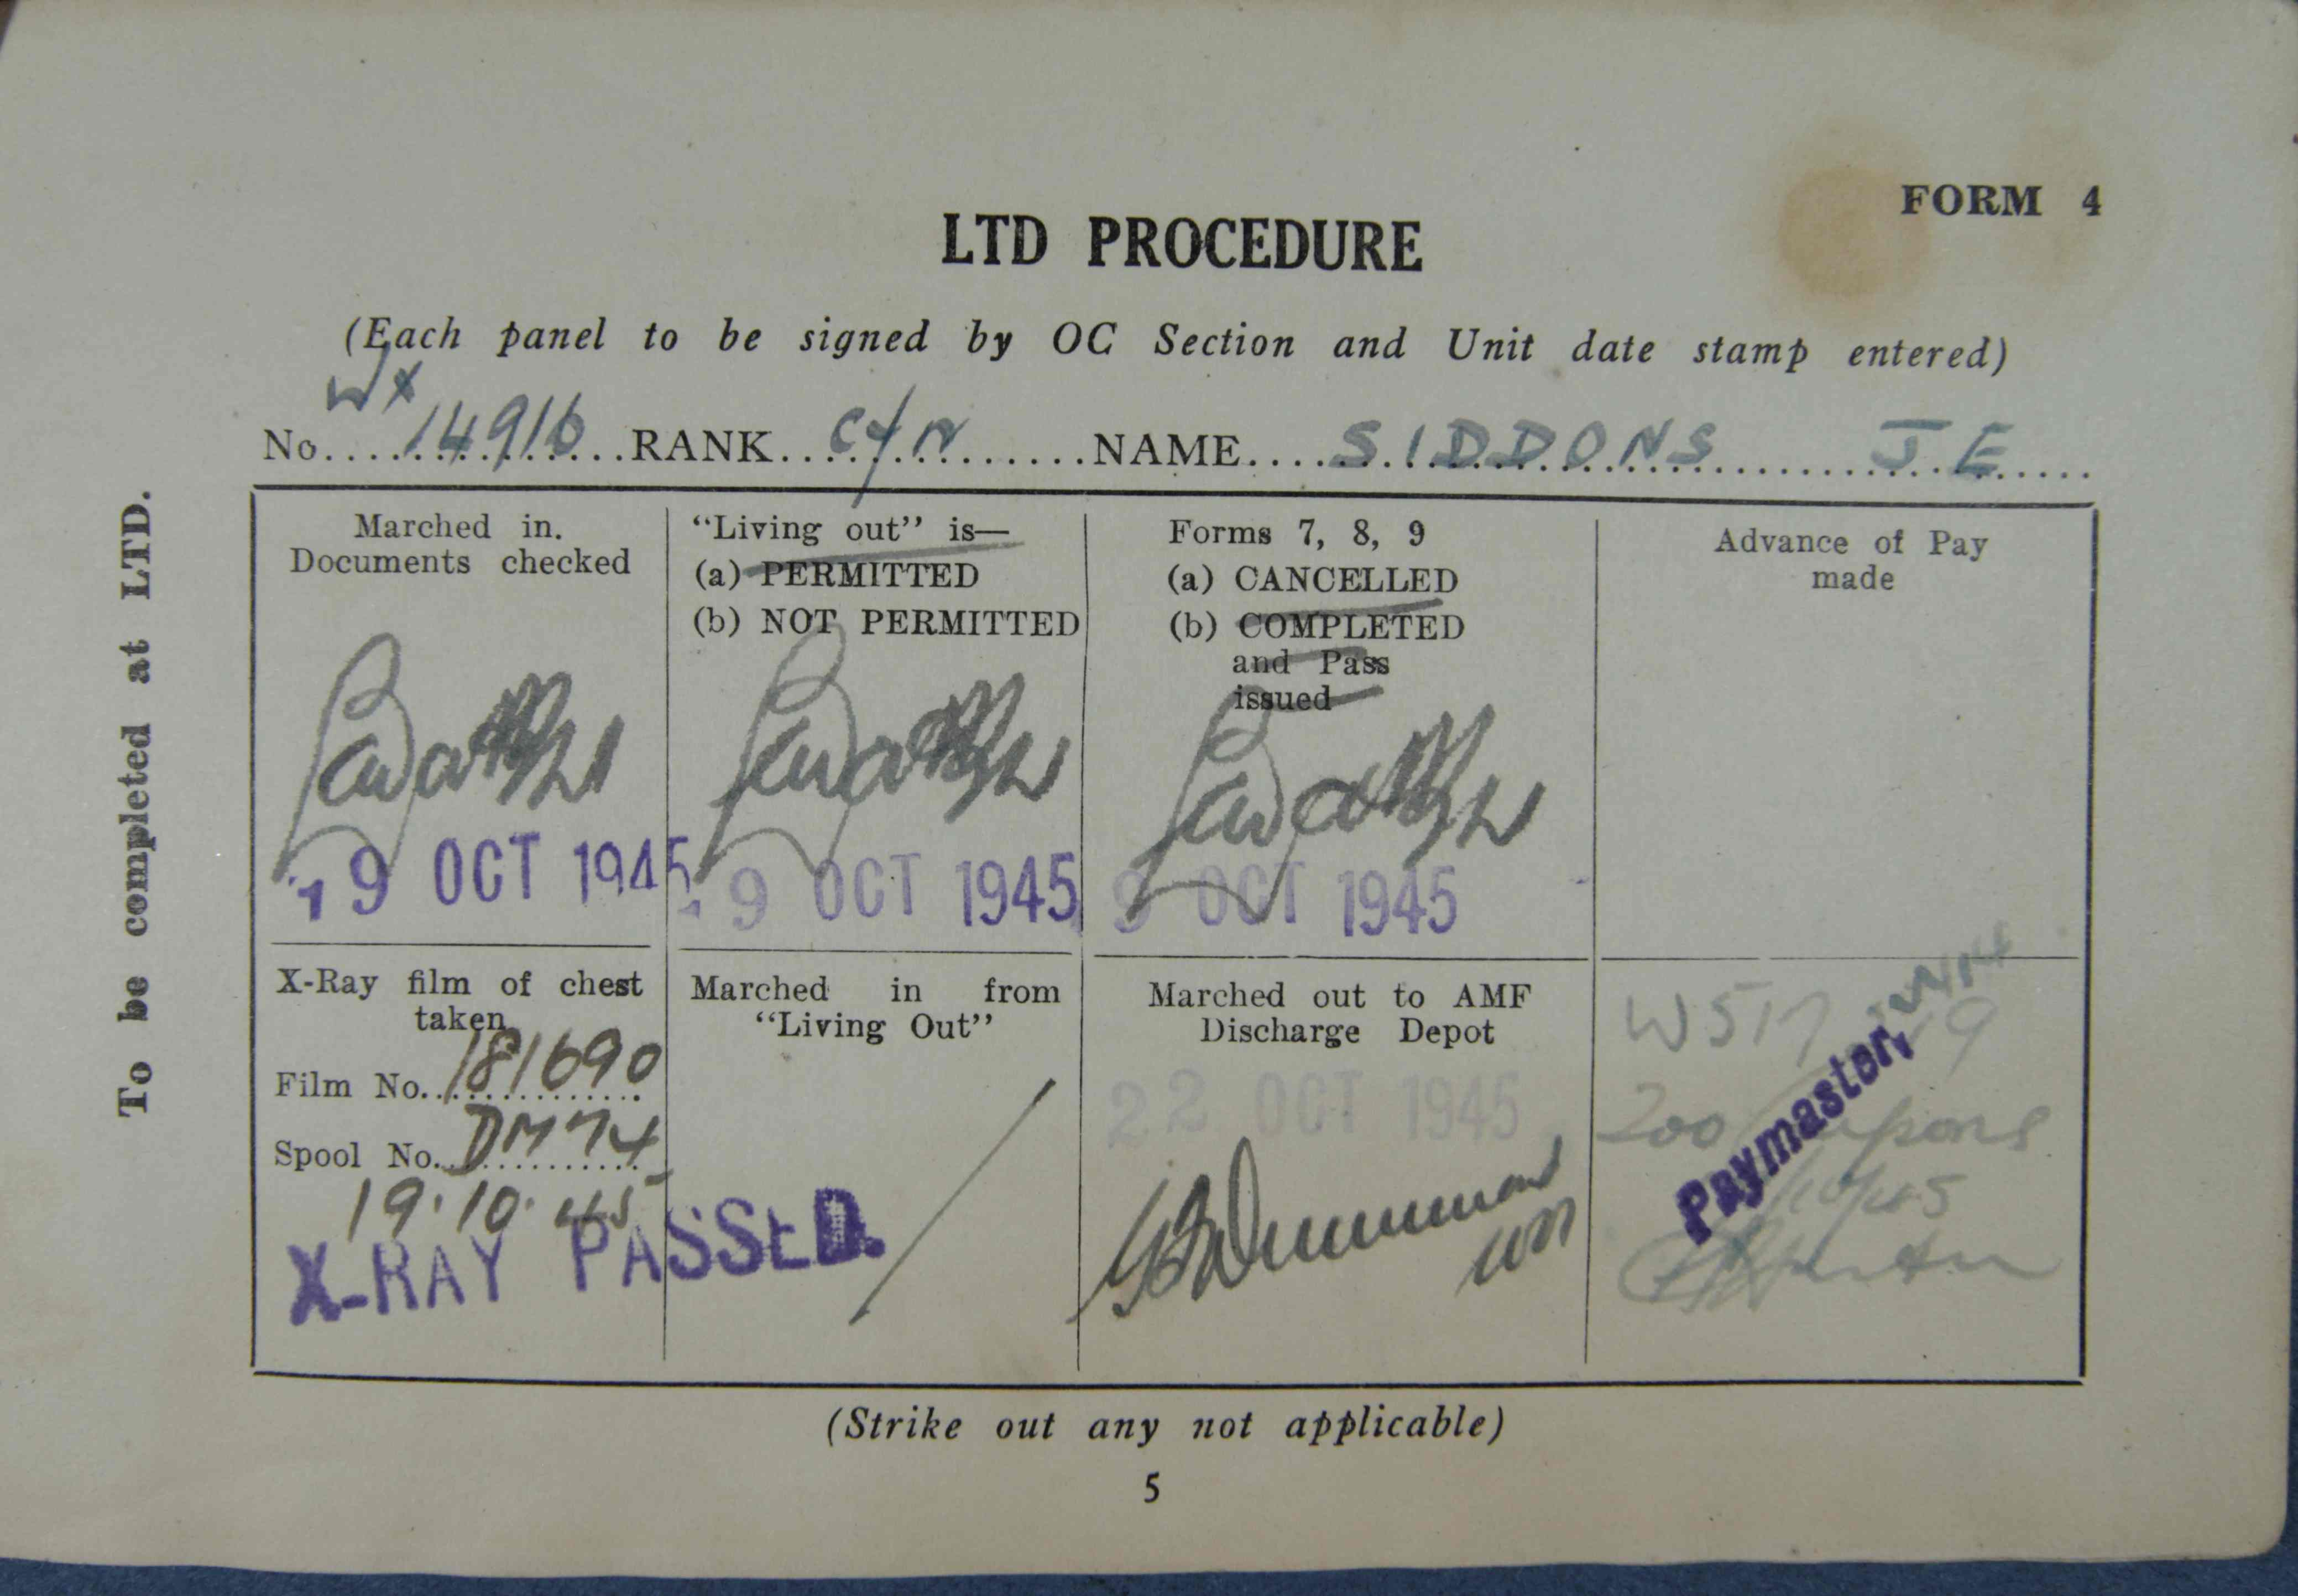 FORM 4
LTD PROCEDURE
(Each panel to be signed by OC Section and Unit date stamp entered)
WX
No....14916....RANK....NAME....SIDDONS J E....
To be completed at LTD.
Marched in.
Documents checked
19 OCT 1945
"Living out" is—
(a) PERMITTED
(b) NOT PERMITTED
9 OCT 1945
Forms 7, 8, 9
(a) CANCELLED
(b) COMPLETED
and Pass
issued
9 OCT 1945
Advance of Pay
made
X-Ray film of chest
taken
Film No. 181690
Spool No. DM74
19.10.45
X-RAY PASSED.
Marched in from
"Living Out"
Marched out to AMF
Discharge Depot
22 OCT 1945
W517 9
200
Paymaster,
(Strike out any not applicable)
5